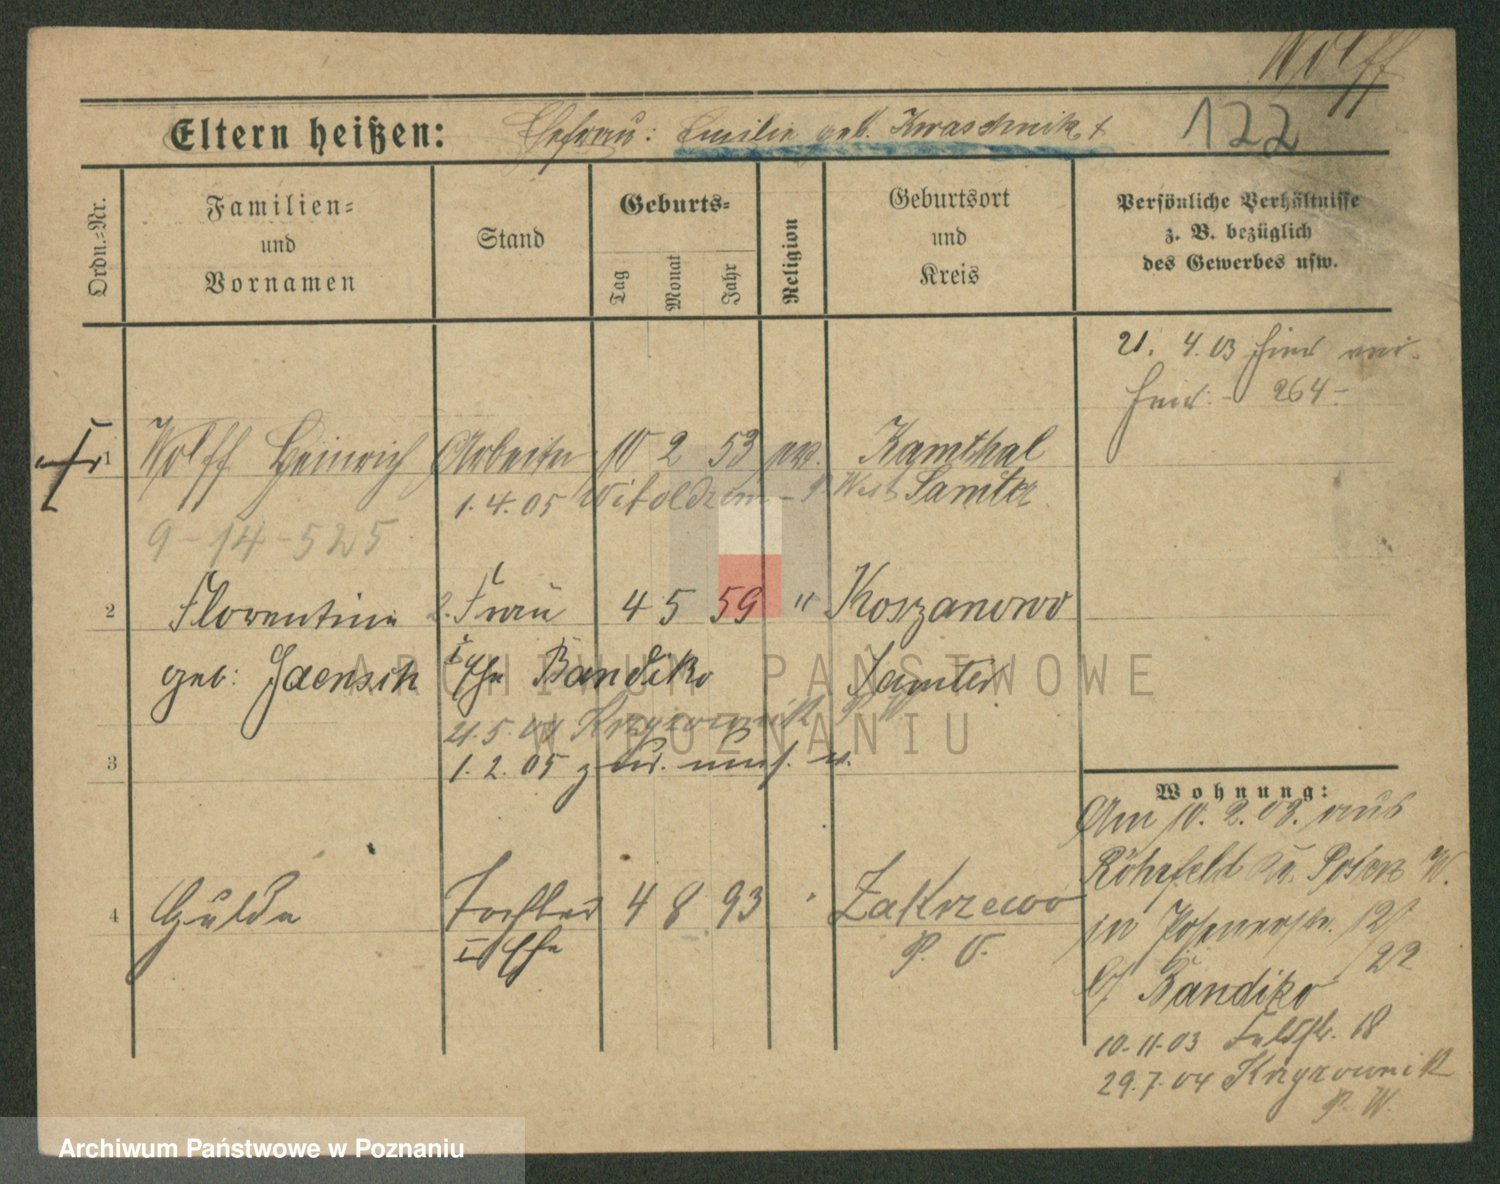 Wolff
Eltern heißen: Ehefrau: Emilie geb. Kwaschnik † 122
Ordn.-Nr.
Familien-
und
Vornamen
Stand
Geburts-
Tag
Monat
Jahr
Religion
Geburtsort
und
Kreis
Persönliche Verhältnisse
z. B. bezüglich
des Gewerbes usw.
21. 4. 03
264-
1 Wolff Heinrich Arbeiter 10 2 53 ev. Kamthal
1.4.05 Witoldzim - P. West Samter
9-14-525
2 Florentine 2. Frau 4 5 59 " Koszanowo
geb: Jaensch I Ehe Bandiko Samter
21.5.04 Krzyzownik P. W
3 1.2.05 zur.
4 Gulda Tochter 4 8 93 " Zakrzewo
I Ehe P. O.
Wohnung:
Am 10. 2. 03. aus
Röhrfeld Kr. Posen W.
in Posenerstr. 12/
22
b/ Bandiko
10-11-03 Feldstr. 18
29.7.04 Krzyzownik
P. W.
ARCHIWUM PAŃSTWOWE
W POZNANIU
Archiwum Państwowe w Poznaniu